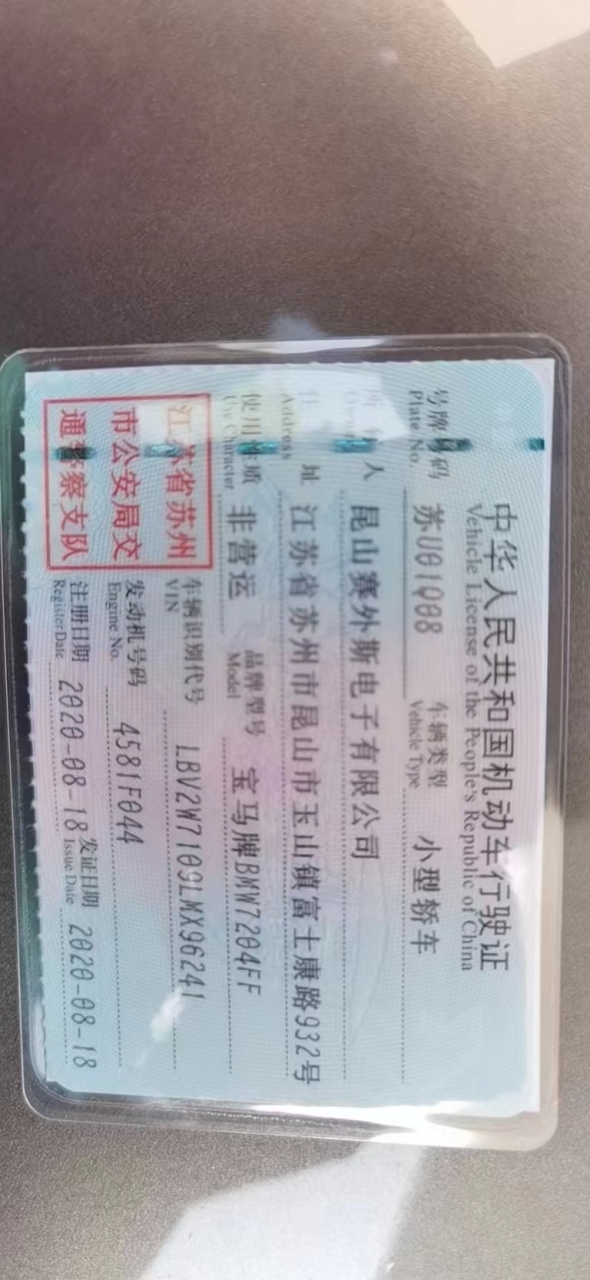 中华人民共和国机动车行驶证
Vehicle License of the People's Republic of China
号牌号码 苏U01Q08 车辆类型 小型轿车
Plate No. Vehicle Type
所有人 昆山赛外斯电子有限公司
Owner
住址 江苏省苏州市昆山市玉山镇富士康路932号
Address
使用性质 非营运 品牌型号 宝马牌BMW7204FF
Use Character Model
江苏省苏州
市公安局交
通警察支队
车辆识别代号 LBV2W7109LMX96241
VIN
发动机号码 4581F044
Engine No.
注册日期 2020-08-18 发证日期 2020-08-18
Register Date Issue Date